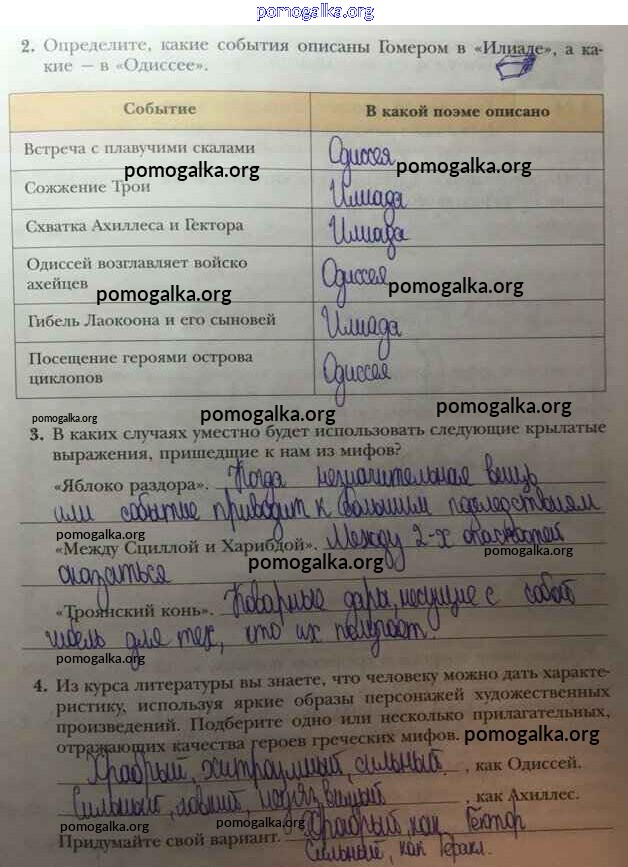 pomogalka.org
2. Определите, какие события описаны Гомером в «Илиаде», а ка-
кие — в «Одиссее».
Событие
В какой поэме описано
Встреча с плавучими скалами
Одиссея
pomogalka.org
pomogalka.org
Сожжение Трои
Илиада
Схватка Ахиллеса и Гектора
Илиада
Одиссей возглавляет войско
ахейцев
Одиссея
pomogalka.org
pomogalka.org
Гибель Лаокоона и его сыновей
Илиада
Посещение героями острова
циклопов
Одиссея
pomogalka.org
pomogalka.org
pomogalka.org
3. В каких случаях уместно будет использовать следующие крылатые
выражения, пришедшие к нам из мифов?
«Яблоко раздора». Когда незначительная вещь
pomogalka.org
или событие приводит к большим последствиям
pomogalka.org
«Между Сциллой и Харибдой». Между 2-х опасностей
pomogalka.org
pomogalka.org
оказаться
pomogalka.org
«Троянский конь». Коварные дары, несущие с собой
pomogalka.org
гибель для тех, кто их получает.
pomogalka.org
4. Из курса литературы вы знаете, что человеку можно дать характе-
ристику, используя яркие образы персонажей художественных
произведений. Подберите одно или несколько прилагательных,
отражающих качества героев греческих мифов.
pomogalka.org
Храбрый, хитроумный, сильный, как Одиссей.
pomogalka.org
Сильный, ловкий, неуязвимый, как Ахиллес.
pomogalka.org
pomogalka.org
Придумайте свой вариант. Храбрый, как Гектор
Сильный, как Геракл.